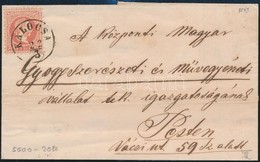 KALOCSA
A Központi Magyar
Gyógyszerészeti és Művegyészeti
vállalat t. cz. igazgatóságának
Pesten
Váczi út 59 sz. alatt
5000-